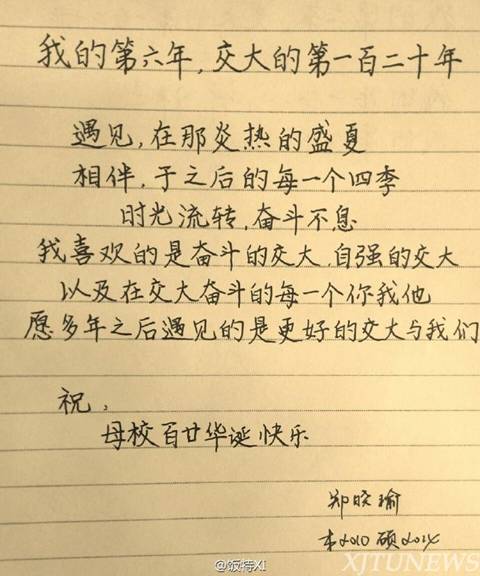 我的第六年，交大的第一百二十年
遇见，在那炎热的盛夏
相伴，于之后的每一个四季
时光流转，奋斗不息
我喜欢的是奋斗的交大，自强的交大
以及在交大奋斗的每一个你我他
愿多年之后遇见的是更好的交大与我们
祝，
母校百廿华诞快乐
郑晓瑜
本2010 硕2014
@饭特XI
XJTUNEWS